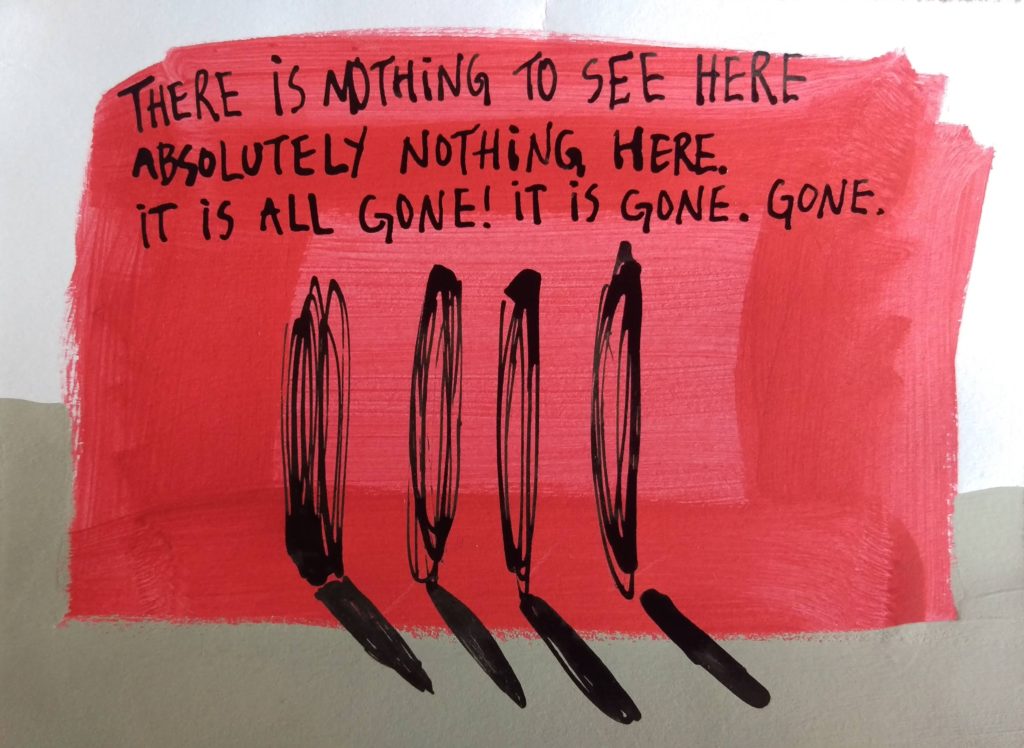 THERE IS NOTHING TO SEE HERE
ABSOLUTELY NOTHING HERE.
IT IS ALL GONE! IT IS GONE. GONE.